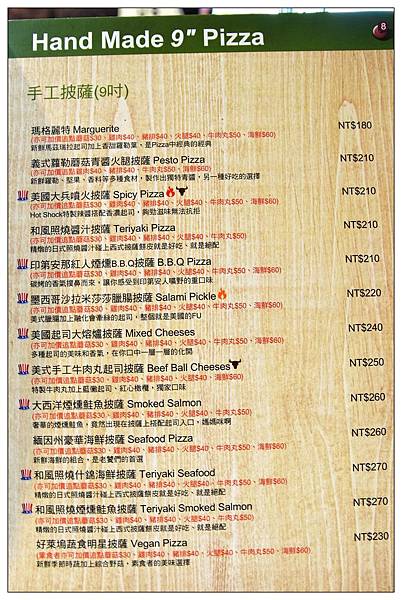 8
Hand Made 9" Pizza
手工披薩(9吋)
瑪格麗特 Marguerite NT$180
(亦可加價追點蘑菇$30、雞肉$40、豬排$40、火腿$40、牛肉丸$50、海鮮$60)
新鮮馬茲瑞拉起司加上香甜羅勒葉、是Pizza中經典的經典
義式蘿勒蘑菇青醬火腿披薩 Pesto Pizza NT$210
(亦可加價追點雞肉$40、豬排$40、火腿$40、牛肉丸$50、海鮮$60)
新鮮羅勒、堅果、香料等多種食材，製作出獨特青醬，另一種好吃的選擇
美國大兵噴火披薩 Spicy Pizza NT$210
(亦可加價追點蘑菇$30、雞肉$40、豬排$40、火腿$40、牛肉丸$50、海鮮$60)
Hot Shock特製辣醬搭配香濃起司，夠勁滋味無法抗拒
和風照燒醬汁披薩 Teriyaki Pizza NT$210
(亦可加價追點蘑菇$30、雞肉$40、豬排$40、火腿$40、牛肉丸$50)
精燉的日式照燒醬汁碰上西式披薩餅皮就是好吃、就是絕配
印第安那紅人煙燻B.B.Q披薩 B.B.Q Pizza NT$210
(亦可加價追點蘑菇$30、雞肉$40、豬排$40、火腿$40、牛肉丸$50、海鮮$60)
碳烤的香氣撲鼻而來，讓你感受到印第安人曠野的重口味
墨西哥沙拉米莎莎臘腸披薩 Salami Pickle NT$220
(亦可加價追點蘑菇$30、雞肉$40、豬排$40、火腿$40、牛肉丸$50、海鮮$60)
美式臘腸加上融化會牽絲的起司，整個就是美國的FU
美國起司大熔爐披薩 Mixed Cheeses NT$240
(亦可加價追點蘑菇$30、雞肉$40、豬排$40、火腿$40、牛肉丸$50、海鮮$60)
多種起司的美味和香氣，在你口中一層一層的化開
美式手工牛肉丸起司披薩 Beef Ball Cheeses NT$250
(亦可加價追點蘑菇$30、雞肉$40、豬排$40、火腿$40、海鮮$60)
特製牛肉丸加上藍黴起司、紅心橄欖，獨家口味
大西洋煙燻鮭魚披薩 Smoked Salmon NT$260
(亦可加價追點蘑菇$30、雞肉$40、豬排$40、火腿$40、牛肉丸$50)
奢華的煙燻鮭魚，竟然出現在披薩上搭配起司入口，媽媽咪啊
緬因州豪華海鮮披薩 Seafood Pizza NT$260
(亦可加價追點蘑菇$30、雞肉$40、豬排$40、火腿$40、牛肉丸$50、海鮮$60)
新鮮海鮮的組合，是老饕們的首選
和風照燒什錦海鮮披薩 Teriyaki Seafood NT$270
(亦可加價追點蘑菇$30、雞肉$40、豬排$40、火腿$40、牛肉丸$50、海鮮$60)
精燉的日式照燒醬汁碰上西式披薩餅皮就是好吃、就是絕配
和風照燒煙燻鮭魚披薩 Teriyaki Smoked Salmon NT$270
(亦可加價追點蘑菇$30、雞肉$40、豬排$40、火腿$40、牛肉丸$50)
精燉的日式照燒醬汁碰上西式披薩餅皮就是好吃、就是絕配
好萊塢蔬食明星披薩 Vegan Pizza NT$230
(葷食者亦可加價追點蘑菇$30、雞肉$40、豬排$40、火腿$40、牛肉丸$50、海鮮$60)
新鮮季節時蔬加上綜合野菇，素食者的美味選擇